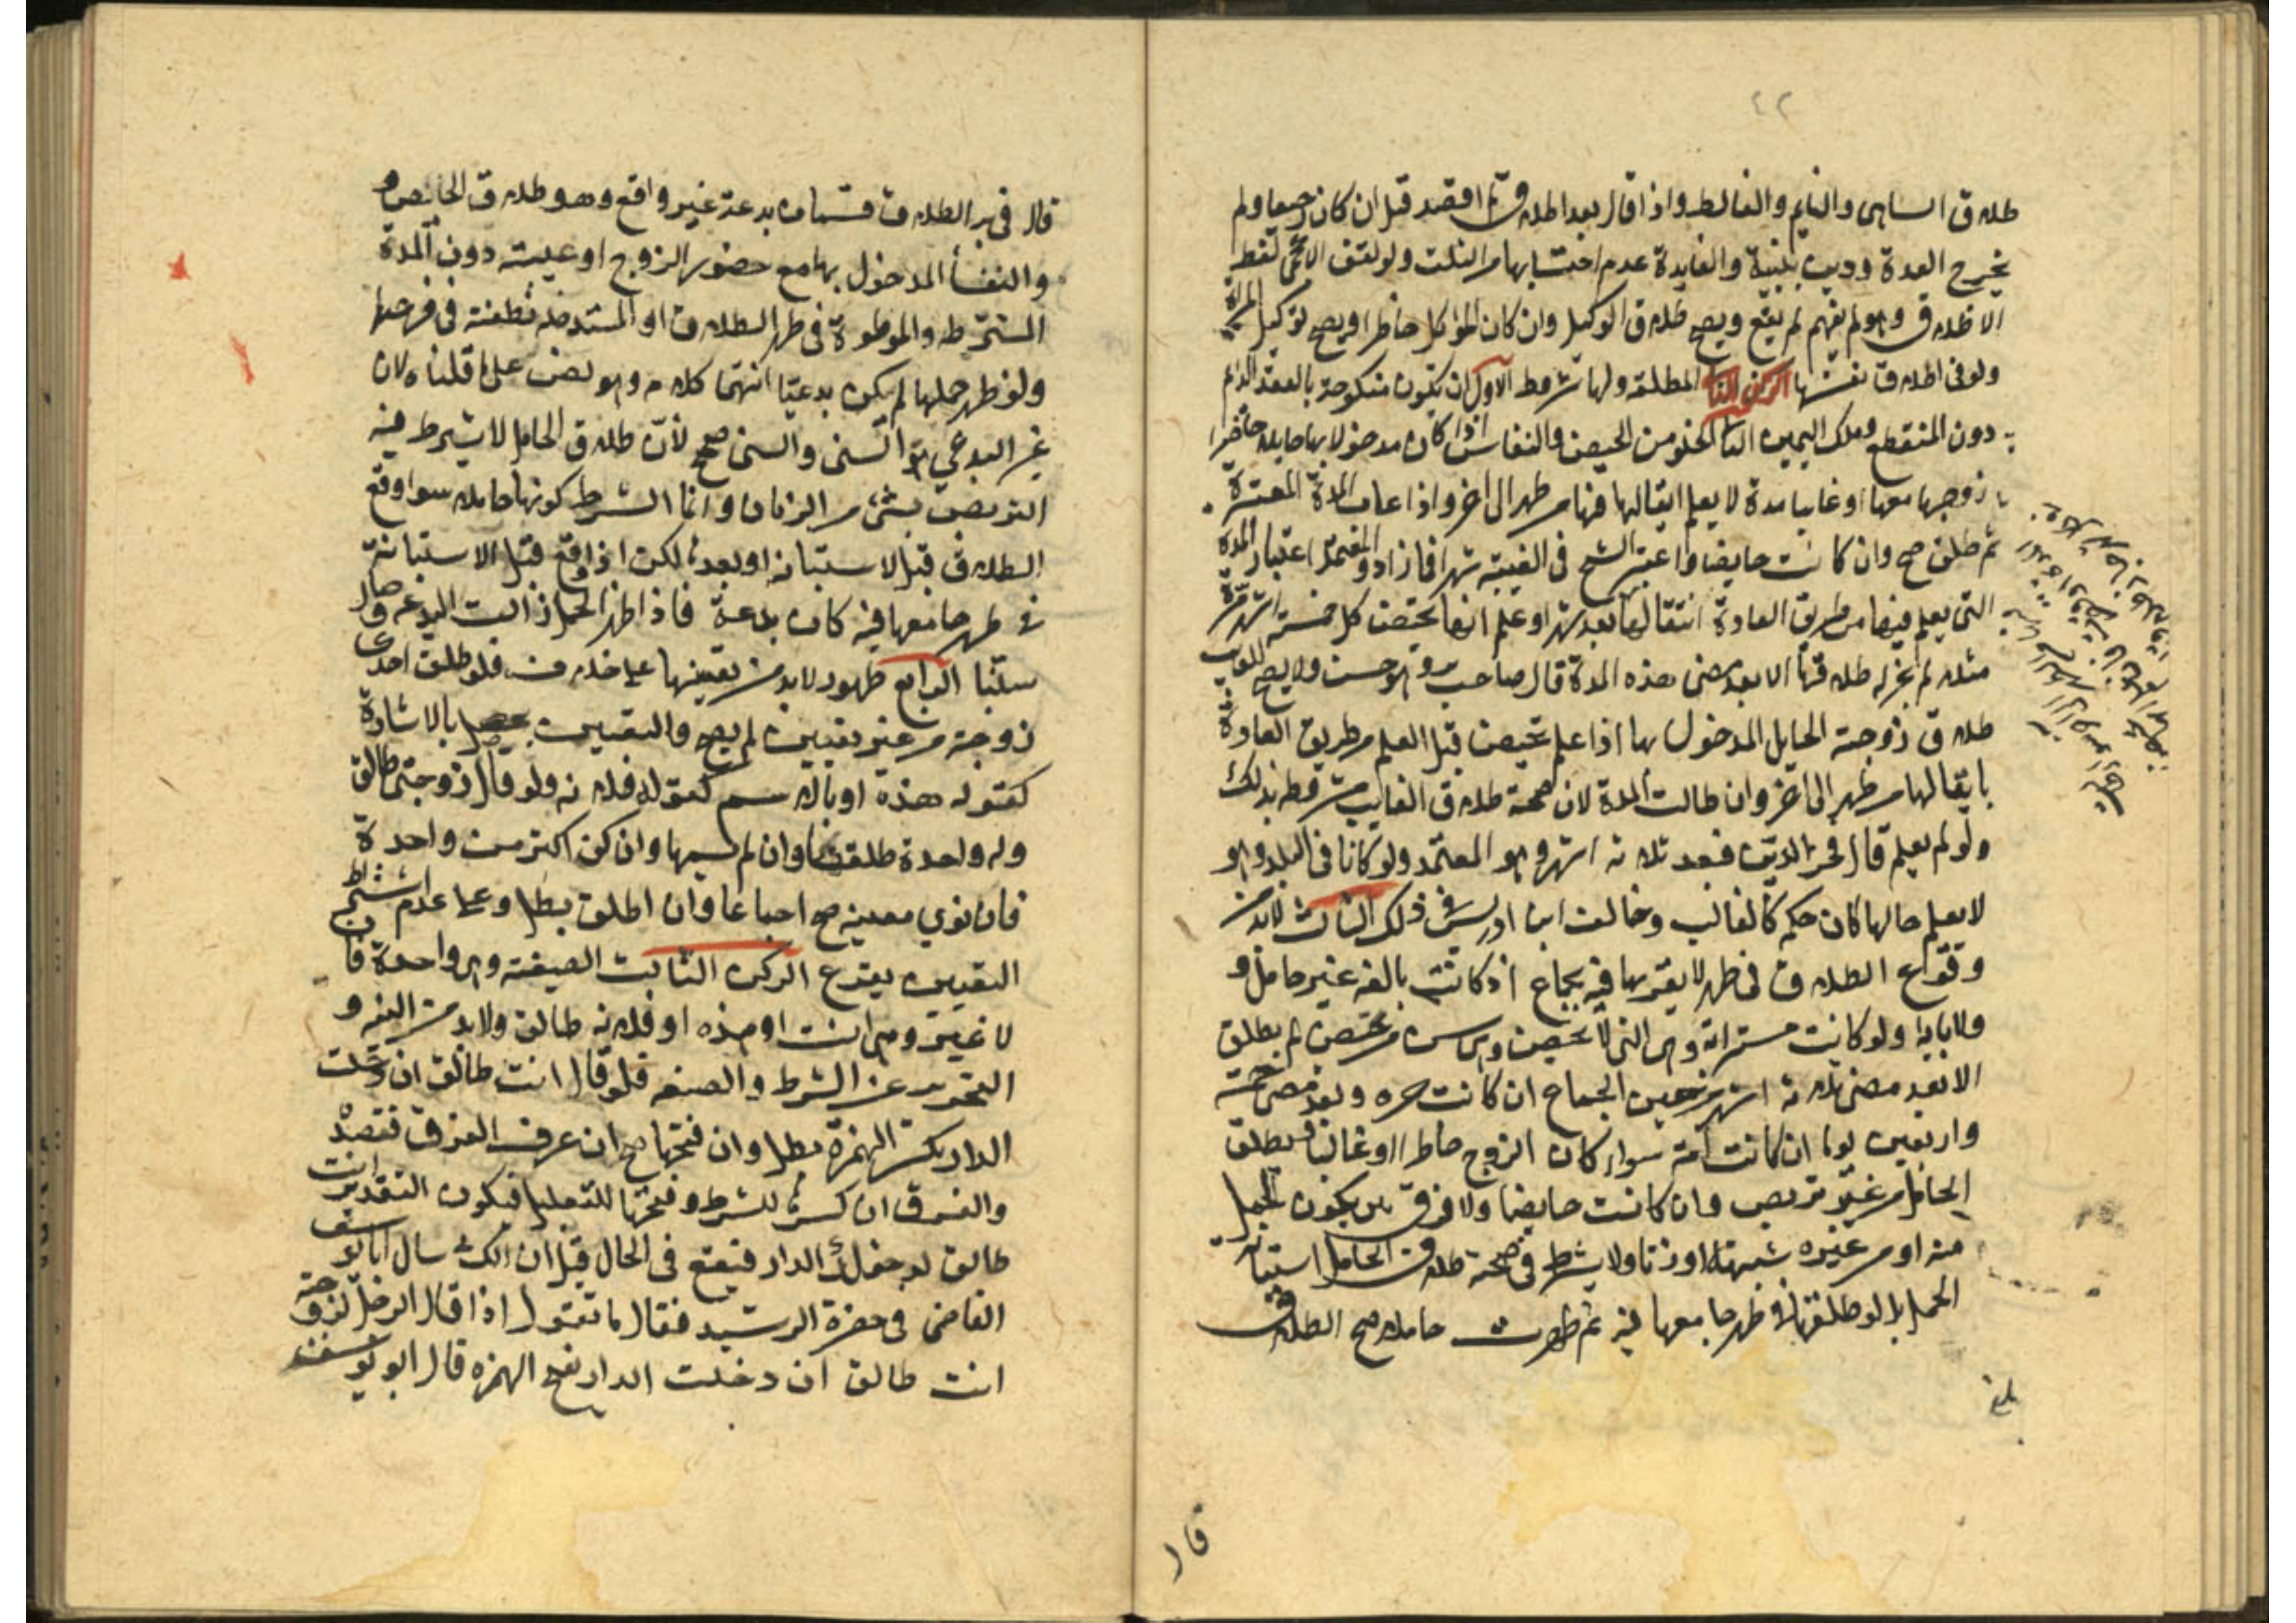 ٤٢
طلاق الساهى والنايم والغالط واذا قال بعد الطلاق ما اقصد قبل ان كان رجعيا ولم
يخرج العدة ودين بنيته والفايدة عدم احتسابها من الثلث ولو لقن الاعجمى لفظ
الاطلاق وهو لم يفهم لم يقع ويصح طلاق الوكيل وان كان الموكل حاضرا ويصح توكيل المراة
ولو فى اطلاق نفسها الركن الثانى المطلقة ولها شروط الاول ان يكون منكوحة بالعقد الدايم
دون المنقطع وملك اليمين الثانى الخلو من الحيض والنفاس اذا كان مدخولا بها حايلا حاضرا
زوجها معها او غايبا مدة لا يعلم انتقالها فيها من طهر الى اخر واذا غاب المدة المعتبرة
ثم طلق صح وان كانت حايضا واعتبر الشيخ فى الغيبة شهرا فما زاد والمعتمد اعتبار المدة
التى يعلم فيها من طريق العادة انتقالها بعد شهر او علم انها تحيض كل خمسة اشهر مرة
مثلا لم يجز له طلاقها الا بعد مضى هذه المدة قال صاحب وهو حسن ولا يصح للغايب
طلاق زوجته الحايل المدخول بها اذا علم تحيض قبل العلم من طريق العادة
بانتقالها من طهر الى اخر وان طالت المدة لان صحة طلاق الغايب مشروطه بذلك
ولو لم يعلم قال فخر الدين فبعد ثلاثة اشهر وهو المعتمد ولو كانا فى البلد وهو
لا يعلم حالها كان حكمه كالغايب وخالف ابن ادريس فى ذلك الثالث لابد من
وقوع الطلاق فى طهر لا يقربها فيه بجماع اذ كانت بالغه غير حامل و
ولا يايسه ولو كانت مسترابة وهى التى لا تحيض وهى فى سن من تحيض لم يطلق
الا بعد مضى ثلاثة اشهر من حين الجماع ان كانت حره وبعد مضى خمسة
واربعين يوما ان كانت امة سواء كان الزوج حاضرا او غايبا ويطلق
الحامل من غير تربص وان كانت حايضا ولا فرق بين يكون الحمل
منه او من غيره شبهة او زنا ولا يشترط فى صحة طلاق الحامل استبانة
الحمل بل لو طلقها فى طهر جامعها فيه ثم ظهرت حاملا صح الطلاق
بلغ
قال
قال فى ير الطلاق قسمان بدعة غير واقع وهو طلاق الحائض و
والنفسأ المدخول بها مع حضور الزوج او غيبته دون المدة
المشترطه والموطوة فى طهر الطلاق او المستدخله نطفته فى فرجها
ولو ظهر حملها لم يكن بدعيا انتهى كلامه وهو نص على ما قلناه لان
غير البدعي هو السنى والسنى صحيح لأن طلاق الحامل لا يشترط فيه
التربص بشئ من الزمان وانما الشرط كونها حاملا سوا وقع
الطلاق قبل الاستبانه او بعده لكن اذا وقع قبل الاستبانة
فى طهر جامعها فيه كان بدعة فاذا ظهر الحمل زالت البدعه وصار
سنيا الرابع ظهور لابد من تعيينها على خلاف فلو طلق احدى
زوجيته من غير تعيين لم يصح والتعيين يحصل بالاشارة
كقوله هذه او بالاسم كقوله فلانه ولو قال زوجتى طالق
وله واحدة طلقت وان لم يسمها وان كن اكثر من واحدة
فان نوي معينه صح اجماعا وان اطلق بطل وعلى عدم اشتراط
التعيين يقرع الركن الثالث الصيغه وهى واحدة
لا غير وهى انت او هذه او فلانه طالق ولابد من
التجريد عن الشرط والصفه فلو قال انت طالق ان دخلت
الدار بكسر الهمزة بطل وان فتحها صح ان عرف الفرق فقصده
والفرق ان كسرها للشرط وفتحها للتعليل فيكون التقدير انت
طالق لدخولك الدار فيقع فى الحال قيل ان الكسائى سال ابا يوسف
القاضى فى حضرة الرشيد فقال ما تقول اذا قال الرجل لزوجته
انت طالق ان دخلت الدار بفتح الهمزه قال ابو يوسف